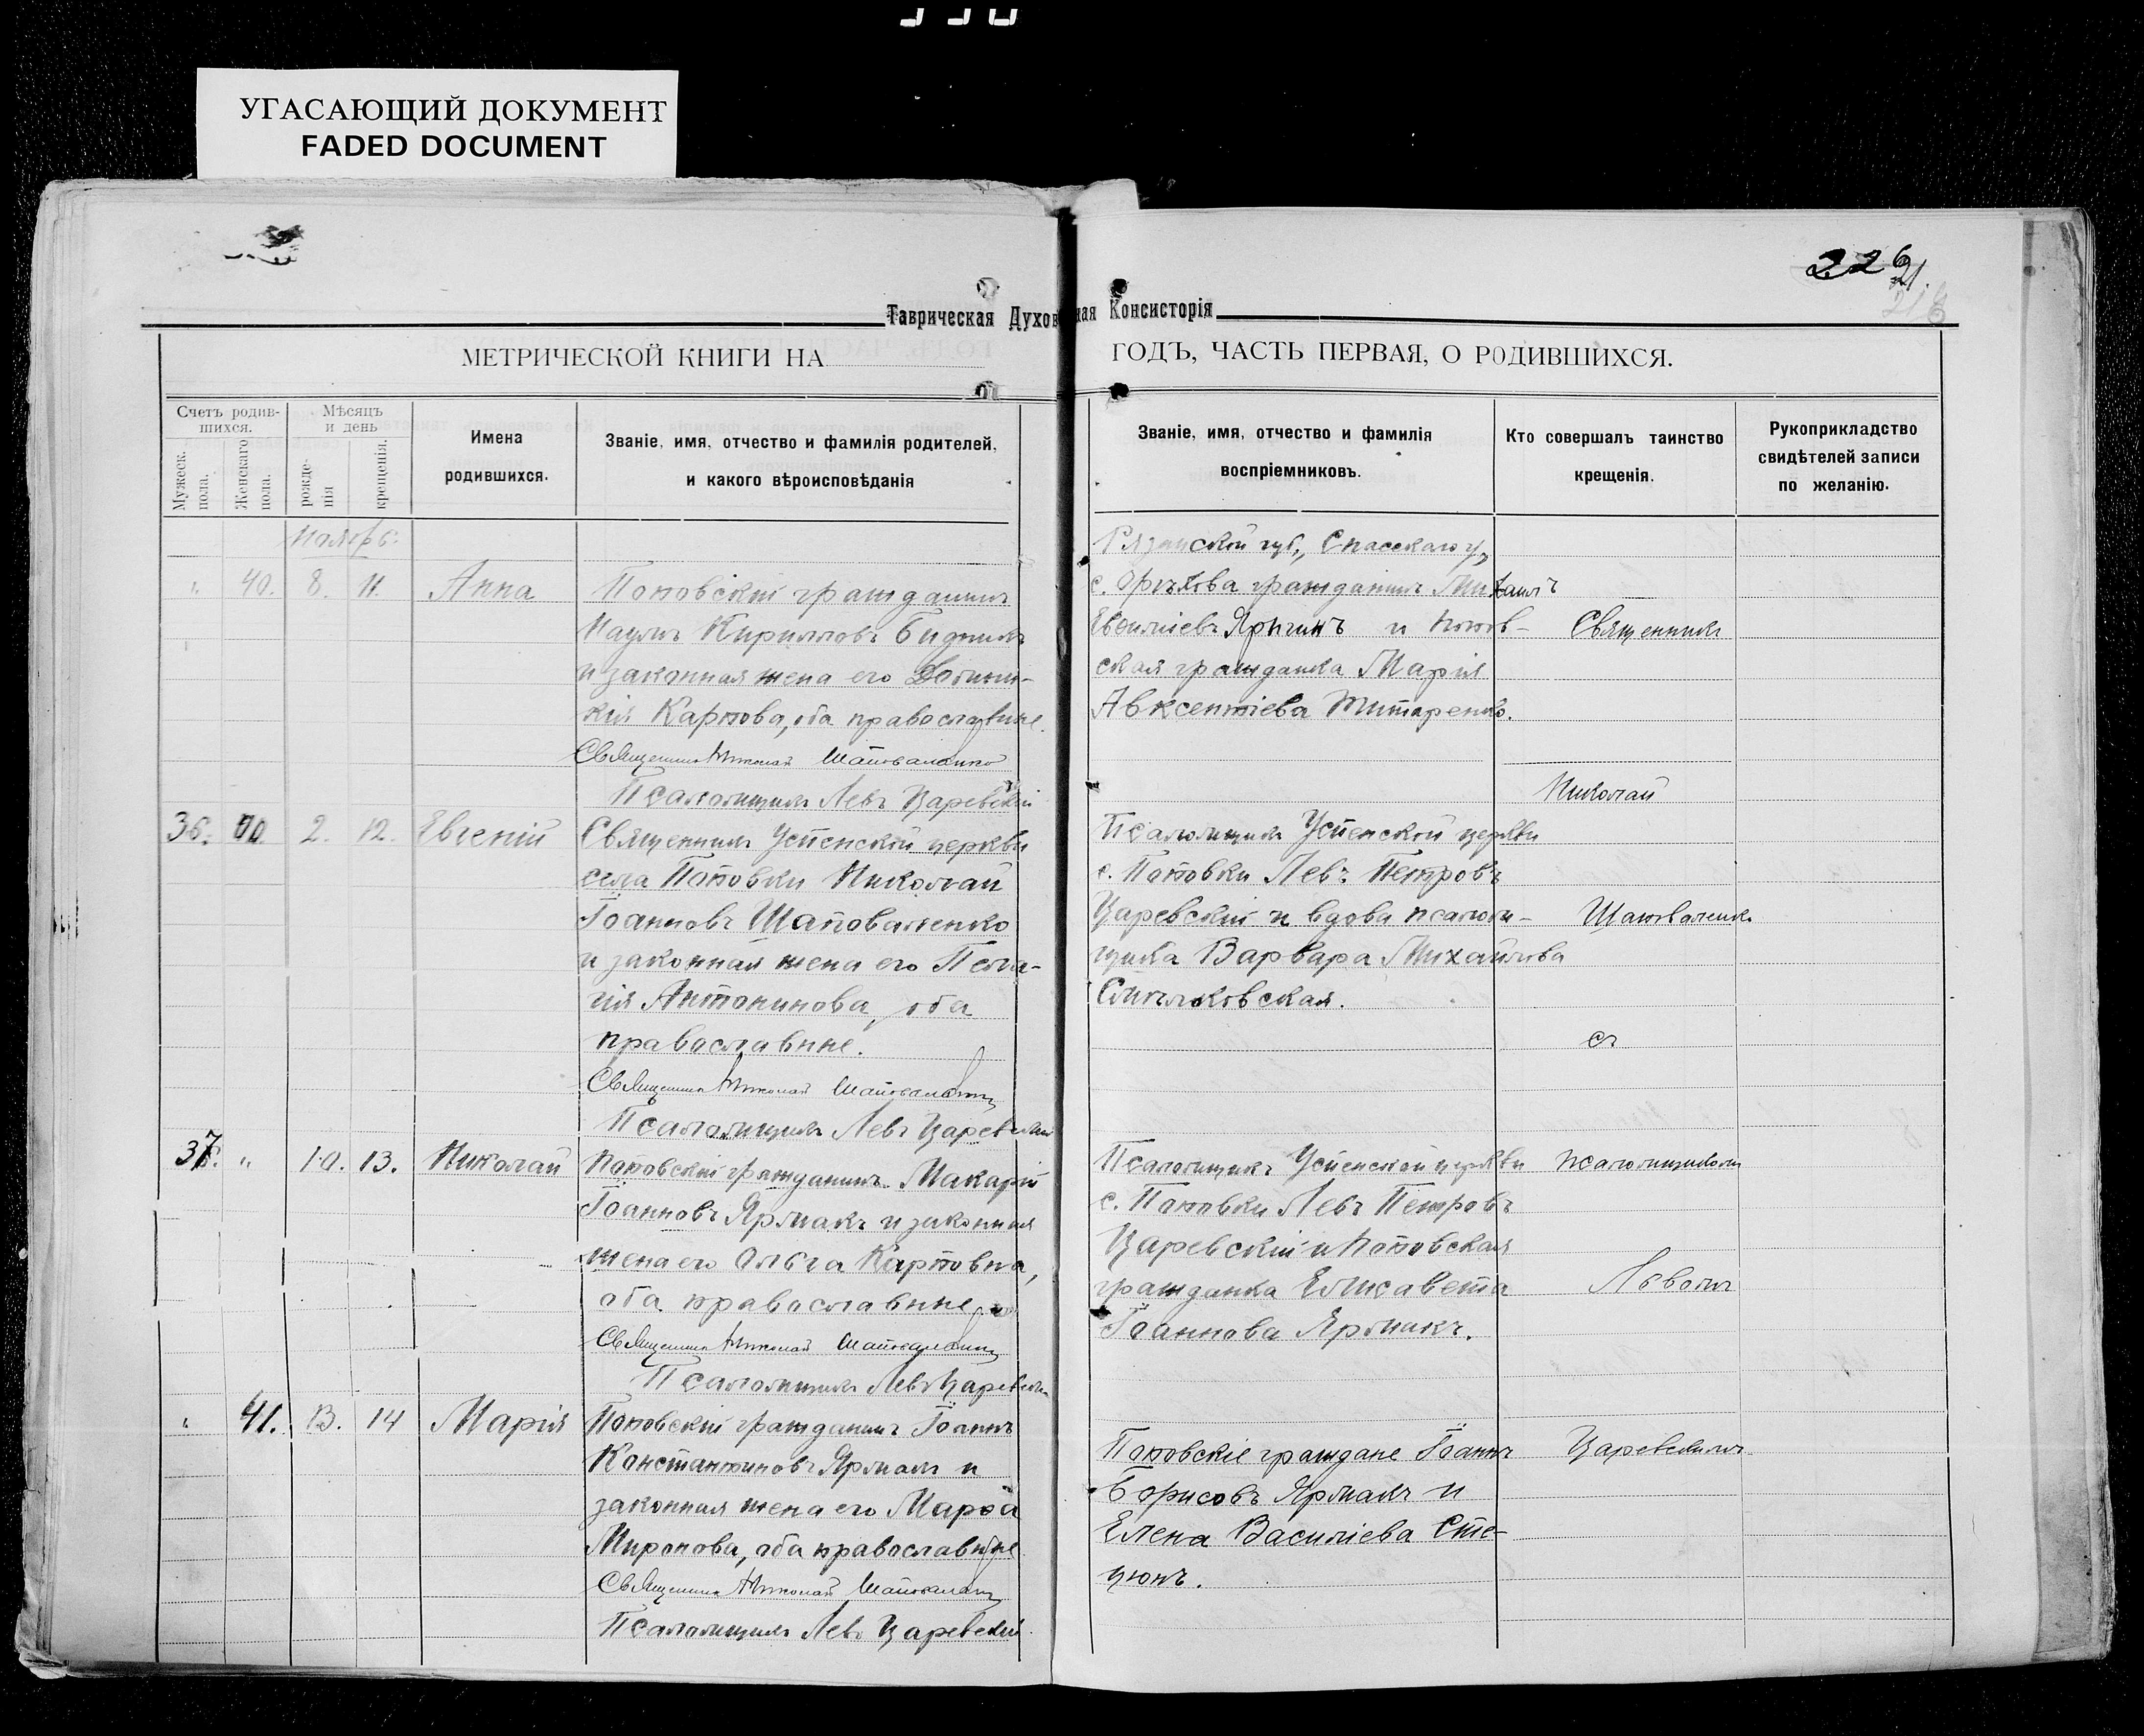 УГАСАЮЩИЙ ДОКУМЕНТ
FADED DOCUMENT
226
21.
Таврическая Духовная Консисторія
МЕТРИЧЕСКОЙ КНИГИ НА
ГОДЪ, ЧАСТЬ ПЕРВАЯ, О РОДИВШИХСЯ.
Счетъ родив-
шихся.
Мужеск. пола.
Женскаго пола.
Мѣсяцъ
и день
рожде-
нія
крещенія.
Имена
родившихся.
Званіе, имя, отчество и фамилія родителей,
и какого вѣроисповѣданія
Званіе, имя, отчество и фамилія
воспріемниковъ.
Кто совершалъ таинство
крещенія.
Рукоприкладство
свидѣтелей записи
по желанію.
Ноябрь
" 40. 8. 11. Анна
Поповскій гражданинъ
Наумъ Кирилловъ Бидникъ
и законная жена его
кія Карпова, оба православные.
Священникъ Николай Шаповаленко
Псаломщикъ Левъ Царевскій
Рязанской губ., Спасскаго у.,
с. гражданинъ Михаилъ
Ярыгинъ и Попов-
ская гражданка Марія
Авксентіева Титаренко.
Священникъ
Николай
36. 2. 12. Евгеній
Священникъ Успенской церкви
села Поповки Николай
Іоанновъ Шаповаленко
и законная жена его Пела-
гія Антонинова, оба
православные.
Священникъ Николай Шаповаленко
Псаломщикъ Левъ Царевскій
Псаломщикъ Успенской церкви
с. Поповки Левъ Петровъ
Царевскій и вдова псалом-
щика Варвара Михайлова
Шаповаленко
съ
37. " 10. 13. Николай
Поповскій гражданинъ Макарій
Іоанновъ Ярмакъ и законная
жена его Ольга Карповна,
оба православные
Священникъ Николай Шаповаленко
Псаломщикъ Левъ Царевскій
Псаломщикъ Успенской церкви
с. Поповки Левъ Петровъ
Царевскій и Поповская
гражданка Елисавета
Іоаннова Ярмакъ.
псаломщикомъ
Львомъ
" 41. 13. 14 Марія
Поповскій гражданинъ Іоаннъ
Константиновъ Ярмакъ и
законная жена его Марѳа
Миронова, оба православные
Священникъ Николай Шаповаленко
Псаломщикъ Левъ Царевскій
Поповскіе граждане Іоаннъ
Борисовъ Ярмакъ и
Елена Василіева Сте-
цюкъ.
Царевскимъ